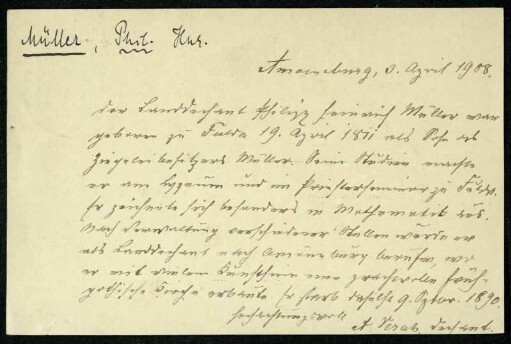 Müller, Phil. Hnr.
Amoeneburg, 3. April 1908.
Der Landdechant Philipp Heinrich Müller war
geboren zu Fulda 19. April 1831 als Sohn des
Ziegeleibesitzers Müller. Seine Studien machte
er am Lyzeum und im Priesterseminar zu Fulda.
Er zeichnete sich besonders in Mathematik aus.
Nach Verwaltung verschiedener Stellen wurde er
als Landdechant nach Amöneburg berufen, wo
er mit vielem Kunstsinn eine prachtvolle früh-
gothische Kirche erbaute. Er starb daselbst 9. Sptbr. 1890.
Hochachtungsvoll
A. Dechant.